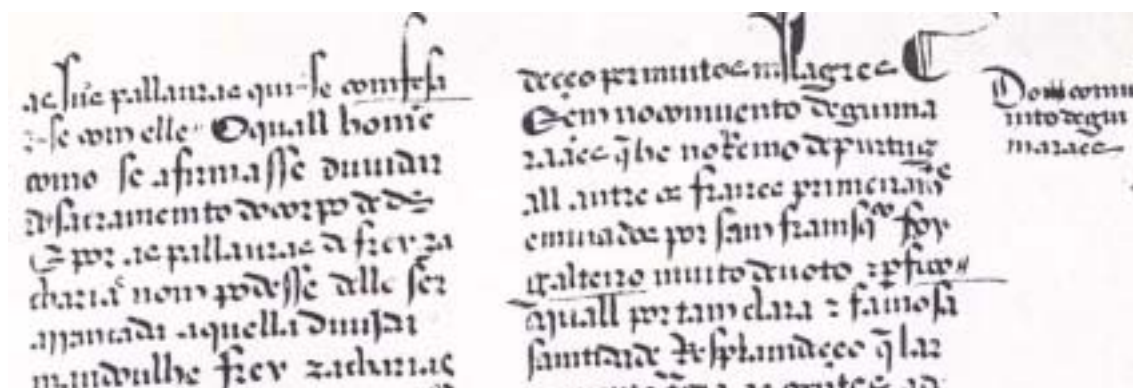 as sue pallauras qui-se comfesa
r-se com elle. O quall home
como se afirmasse duuidar
do sacramemto do corpo de ds
E por as pallauras de frey za
charias nom podesse delle ser
arrancada aquella duuida
mandoulhe frey zacharias
deçeo per muitos millagres
Em no comuento de guima
raães q̃ he no rẽmo de purtug
all antre os frares primeiramẽte
emuiados por sam framsqᶜᵒ foy
galteiro muito deuoto r p̱fico
a quall por tam clara r famosa
samtidade Resplamdeçeo q̃ lar
Do comu
imto de gui
maraães